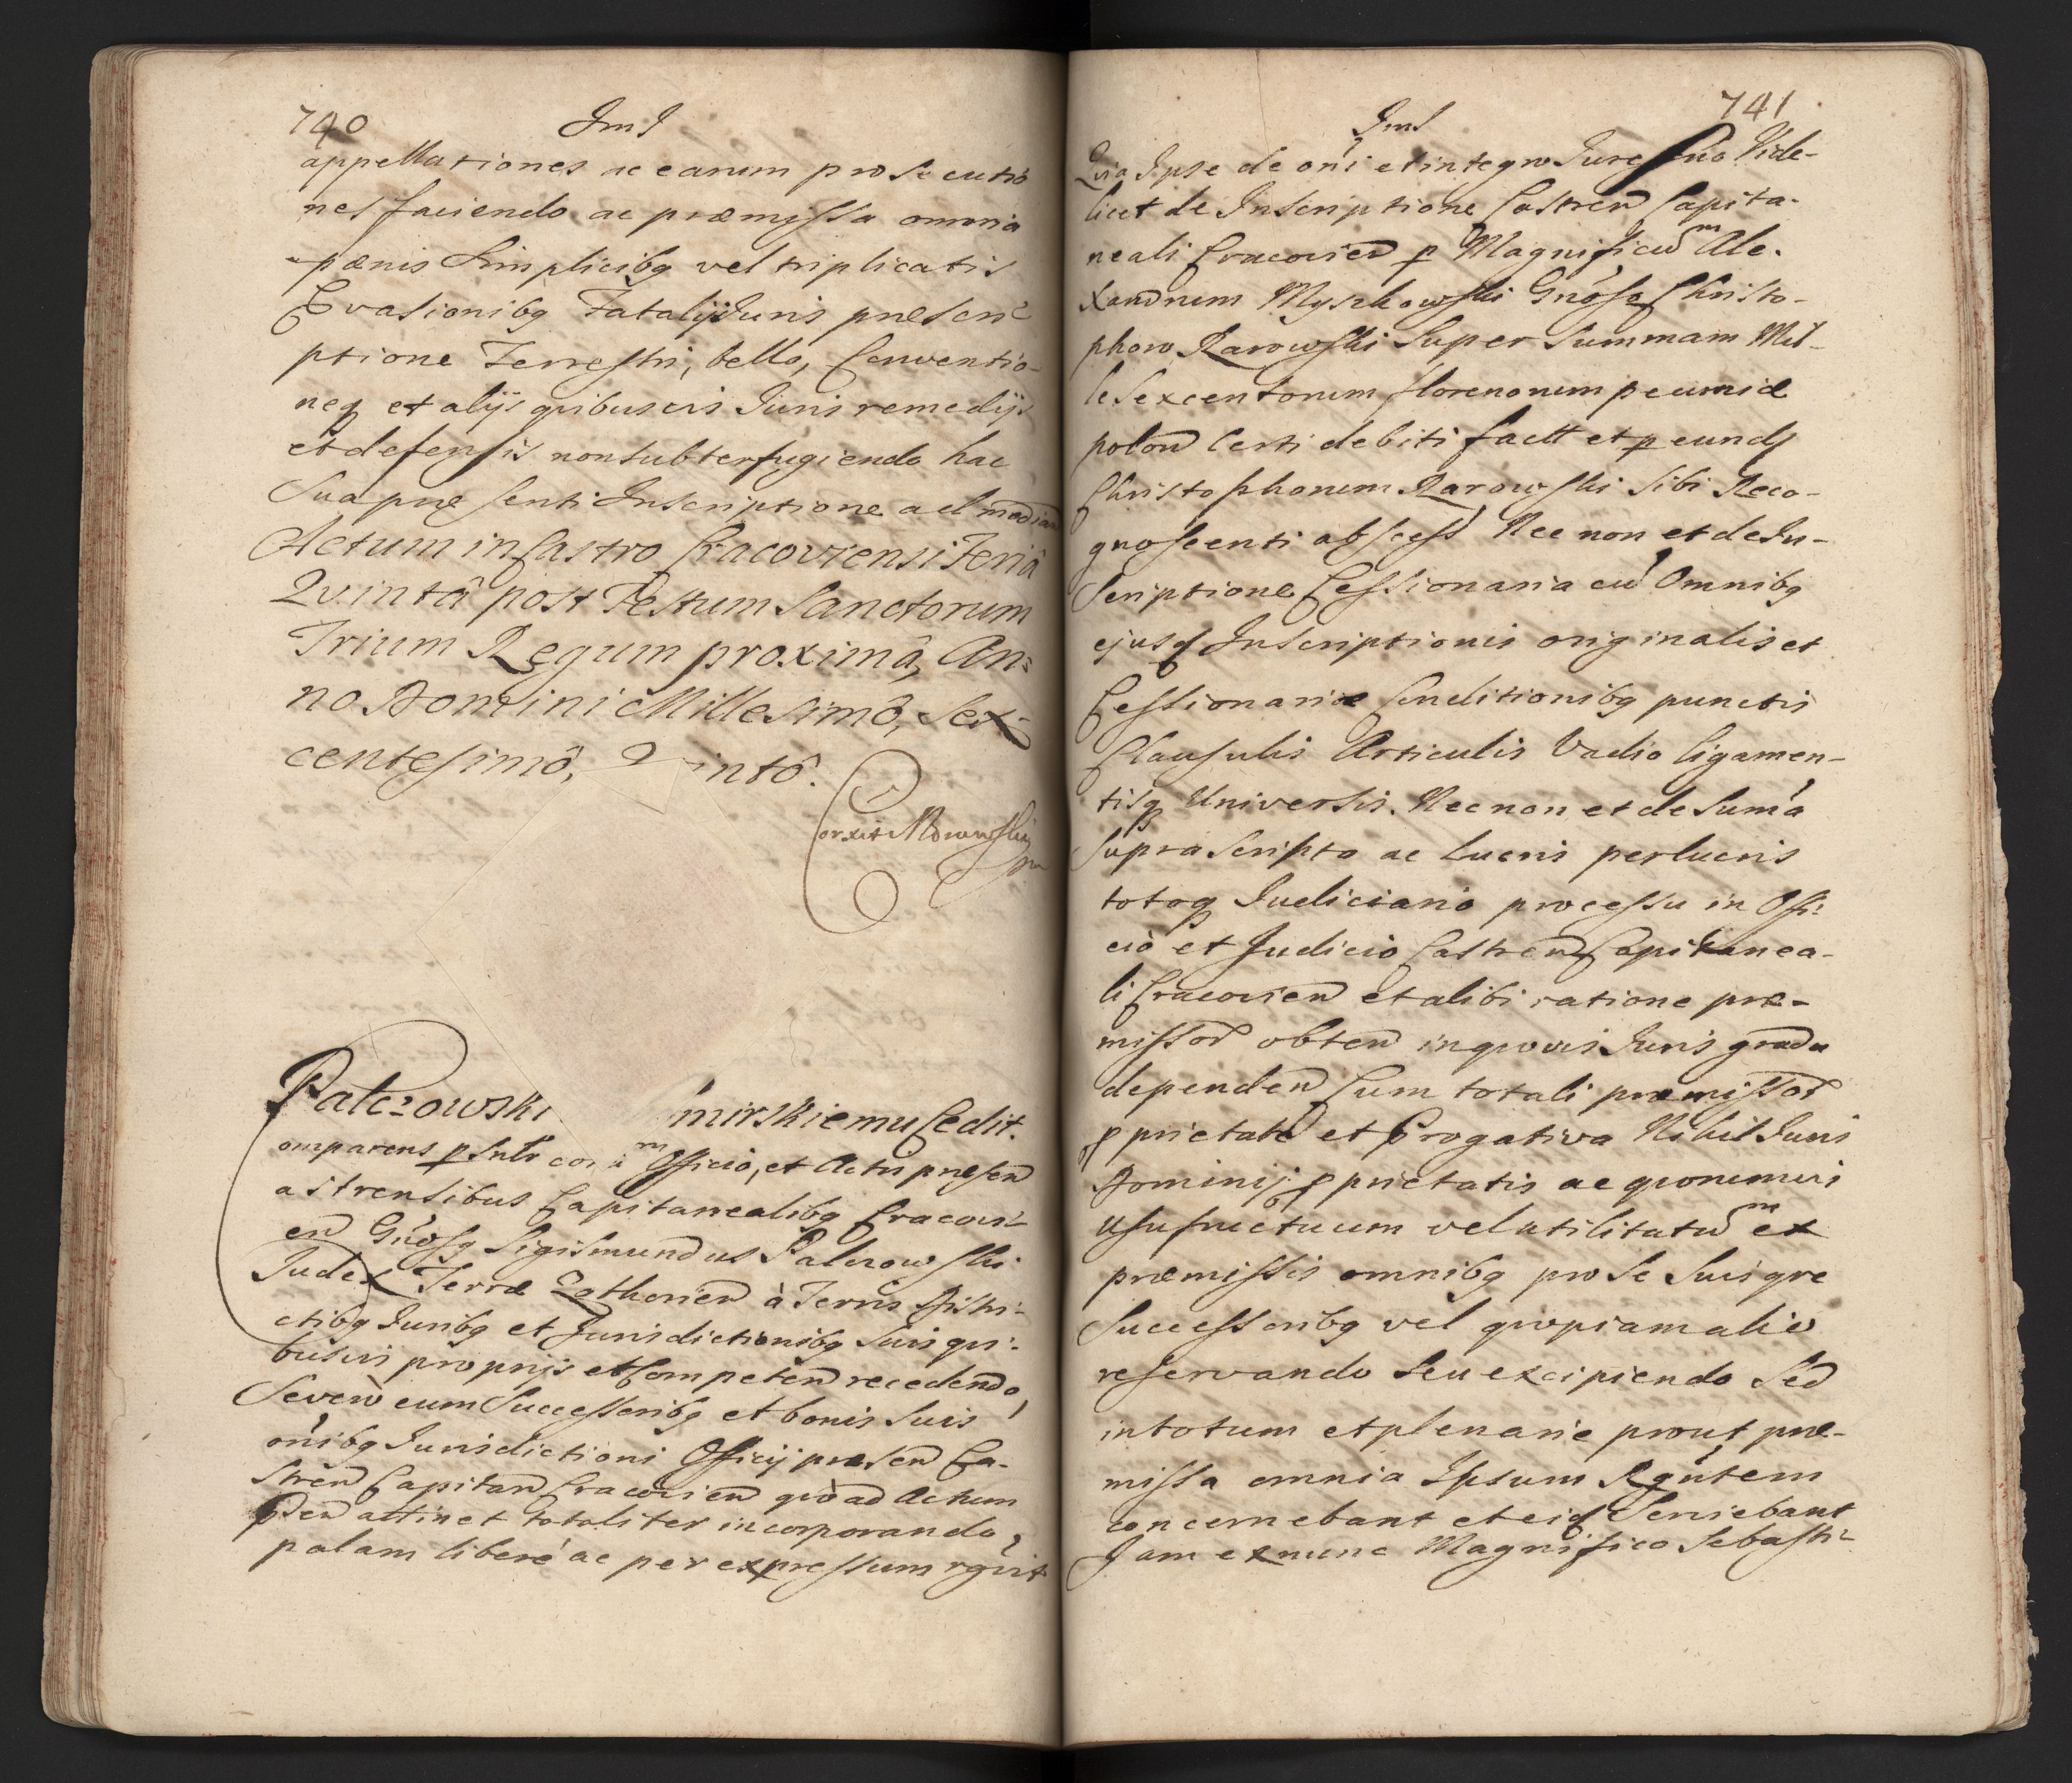 740
ImJ
appellationes ac earum prosecutio
nes faciendo ac præmissa omnia
pænis simplicibq vel triplicatis
Evasionibq Fatalijs Iuris præscri-
ptione Terrestri, bello, Conventio-
neq et alijs quibusvis Iuris remedijs
et defensis non subterfugiendo hac
Sua præsenti Inscriptione ad
Actum in Castro Cracoviensi Feriâ
Quintâ post Festum Sanctorum
Trium Regum proximâ, An-
no Domini Millesimô, Sex-
centesimô, intô.
Corxit
Palczowski mirskiemu Cedit.
omparens p officio, et Actis præsen
astrensibus Capitanealibq Cracovi-
en Gnosq Sigismundus Palczowski
Judex Terræ Zathorien à Terris Distri-
ctibq Iuribq et Jurisdictionibq Suis qui-
busvis proprijs et Competen recedendo,
Severo cum Successoribq et bonis Suis
onibq Iurisdictioni Officij præsen Ca-
stren Capitan Cracovien quò ad Actum
attinet totaliter incorporando,
palam liberè ac per expressum rgvit
741
ImJ
Quia Ipse de oni et integro Iure Suo Vide-
licet de Inscriptione Castren Capita-
neali Cracovien p Magnificum Ale-
xandrum Myszkowski Gnoso Christo-
phoro Rarowski Super Summam Mil-
le Sexcentorum florenorum pecuniæ
polon Certi debiti fact et p eund
Christophorum Rarowski Sibi Reco-
gnoscenti Nec non et de In-
scriptione Cessionaria cu Omnibq
ejusd Inscriptionis originalis et
Cessionariæ Conditionibq punctis
Clausulis Articulis Vadio ligamen-
tisq Universis. Nec non et de Suma
Suprascripta ac Lucris perlucris
totoq Iudiciario processu in Offi-
cio et Judicio Castren Capitanea-
li Cracovien et alibi ratione præ-
missor obten in quovis Iuris gradu
dependen Cum totali præmissor
pprietate et Prrogativa Nihil Iuris
Dominij pprietatis ac quorumvis
Usufructuum vel utilitatum ex
præmissis omnibq pro Se Suisqre
Successoribq vel quopiam alio
reservando Seu excipiendo Sed
in totum et plenarie prout præ-
missa omnia Ipsum Rgntem
concernebant et eid Serviebant
Jam ex nunc Magnifico Sebasti-